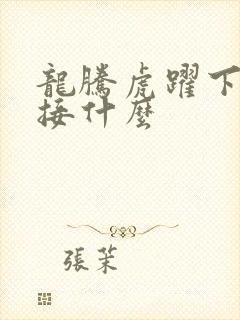 龍騰虎躍下
接什麼
張茉